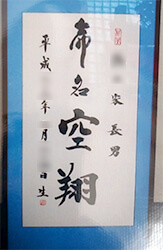 家長男
命名 空翔
平成 年 月 日生